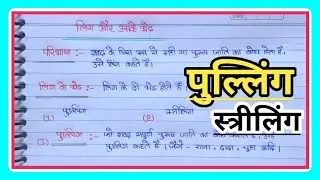 लिंग और उसके भेद
परिभाषा :- शब्द के जिस रूप से स्त्री या पुरुष जाति का बोध होता है,
उसे लिंग कहते हैं।
लिंग के भेद :- लिंग के दो भेद होते हैं
(1) पुल्लिंग (2) स्त्रीलिंग
(1) पुल्लिंग :- जो शब्द पुरुष जाति का
पुल्लिंग कहते हैं। जैसे - राजा, दादा, आदि।
पुल्लिंग
स्त्रीलिंग